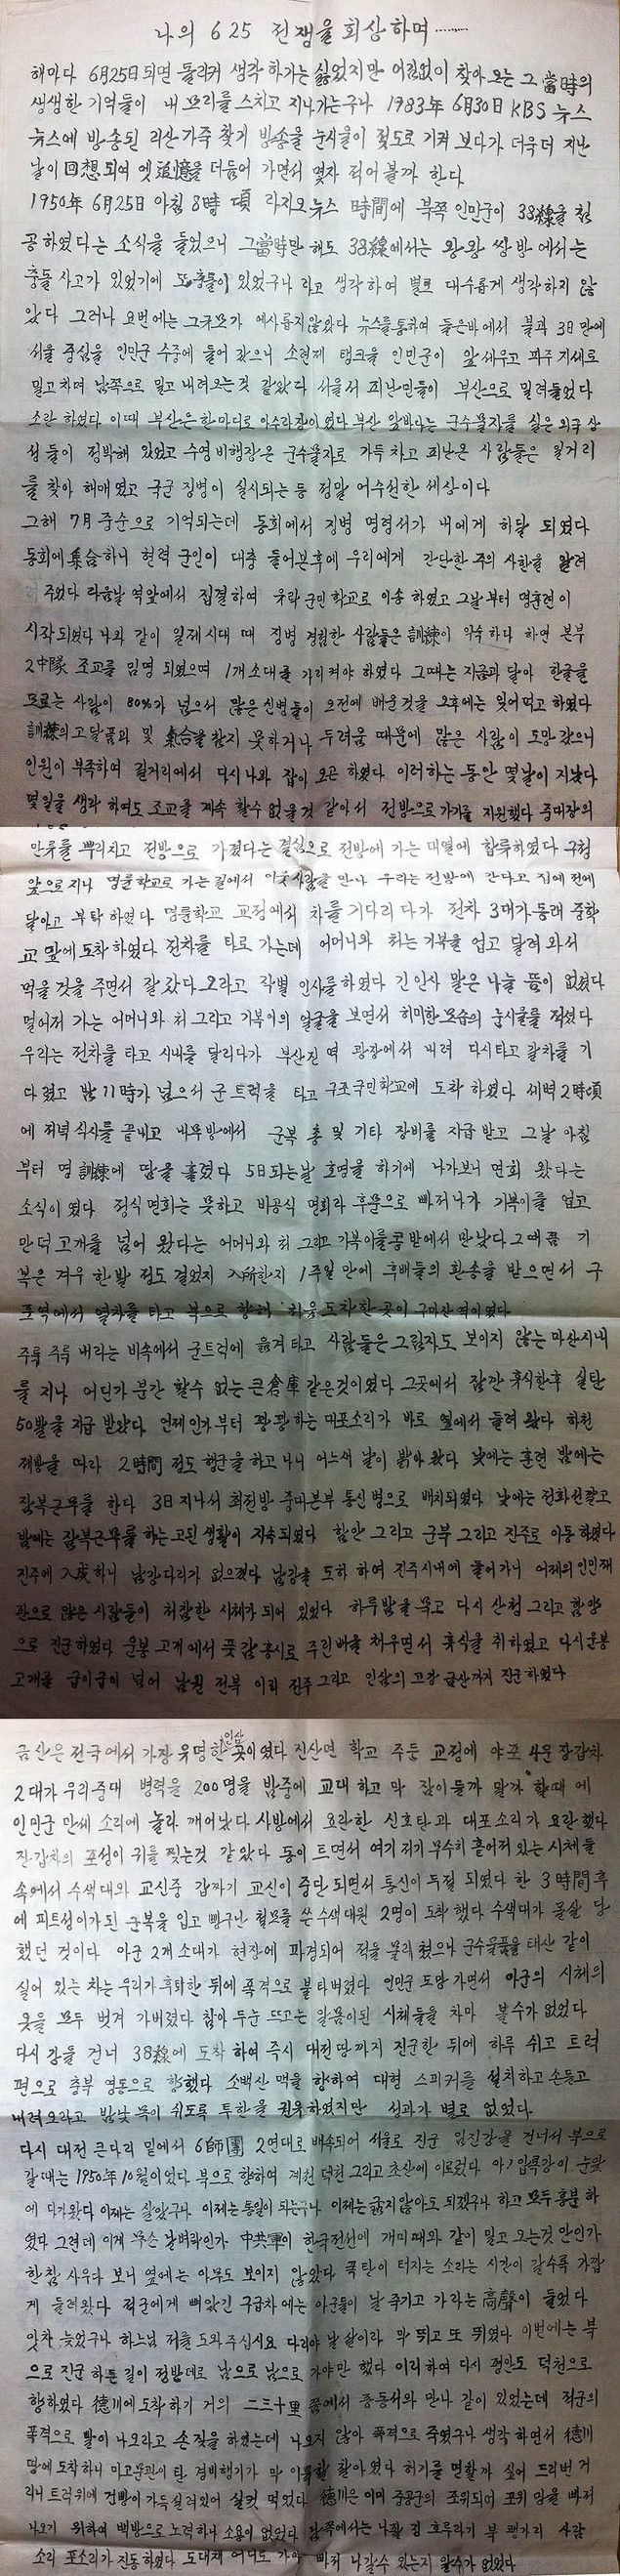 나의 6 25 전쟁을 회상하며……
해마다 6月25日되면 돌리켜 생각하기는 싫었지만 어김없이 찾아오는 그 當時의
생생한 기억들이 내 머리를 스치고 지나가는구나 1983年 6月30日 KBS 뉴스
뉴스에 방송된 리산가족 찾기 방송을 눈시울이 젖도로 기켜 보다가 더우더 지난
날이 回想되여 옛 追憶을 더듬어 가면서 몇자 적어볼까 한다
1950年 6月25日 아침 8時頃 라지오뉴스 時間에 북쪽 인민군이 38線을 침
공하였다는 소식을 들었으니 그當時만 해도 38線에서는 왕왕 쌍방에서는
충돌 사고가 있었기에 또 충돌이 있었구나 라고 생각하여 별로 대수롭게 생각하지 않
았다 그러나 요번에는 그規모가 예사롭지않았다 뉴스를통하여 들은바에서 불과 3日만에
서울 중심을 인민군 수중에 들어 갔으니 소련제 탱크을 인민군이 앞세우고 파주지세로
밀고치며 남쪽으로 밀고 내려오는것 같았다 서울서 피난민들이 부산으로 밀려들었다
소란하였다 이때 부산은 한마디로 아수라장이였다 부산 앞바다는 군수물자를 실은 외국상
선들이 정박해 있었고 수영비행장은 군수물자로 가득차고 피난온 사람들은 일거리
를 찾아 해매였고 국군 징병이 실시되는 등 정말 어수선한 세상이다
그해 7月 중순으로 기억되는데 동회에서 징병 명령서가 내에게 하달 되였다
동회에 集合하니 현력 군인이 대충 들어본후에 우리에게 간단한 주의 사한을 알려
주었다 다음날 역앞에서 집결하여 유락 국민학교로 이송 하였고 그날부터 맹훈련이
시작되였다 나와 같이 일제시대 때 징병 경험한 사람들은 訓練이 익숙하다 하면 본부
2中隊 조교를 임명 되였으며 1개소대를 가리켜야 하였다 그때는 지금과 달아 한글을
모르는 사람이 80%가 넘으서 많은 신병들이 오전에 배운것을 오후에는 잊어먹고 하였다
訓練의 고달픔과 및 集合을 참지 못하거나 두려움 때문에 많은 사람이 도망 갔으니
인원이 부족하여 길거리에서 다시나와 잡아 오곤 하였다 이러하는 동안 몇날이 지났다
몇일을 생각 하여도 조교를 계속 할수 없을것 같아서 전방으로 가기를 지원했다 중대장의
만류를 뿌리치고 전방으로 가겠다는 결심으로 전방에 가는 대열에 합류하였다 구청
앞으로 지나 명륜학교로 가는길에서 이웃사람을 만나 우리는 전방에 간다고 집에 전에
달아고 부탁 하였다 명륜학교 교정에서 차를 기다리다가 전차 3대가 동래 중학
교앞에 도착하였다 전차를 타로 가는데 어머니와 처는 기복을 업고 달려와서
먹을것을 주면서 잘갔다 오라고 작별 인사를하였다 긴인사 말은 나눌 틈이 없었다
멀어저 가는 어머니와 처 그리고 기복이의 얼굴을 보면서 히미한 모습의 눈시울를 적셨다
우리는 전차를 타고 시내를 달리다가 부산진역 광장에서 내려 다시타고갈차를 기
다렸고 밤 11時가 넘으서 군트럭을 타고 구포국민학교에 도착 하였다 새벽 2時頃
에 저녁식사를 끝내고 내무방에서 군복 총 및 기타 장비를 지급 받고 그날 아침
부터 맹訓練에 땀을 흘렸다 5日되는날 호명을 하기에 나가보니 면회 왔다는
소식이 였다 정식 면회는 못하고 비공식 면회라 후문으로 빠저나가 기복이를 업고
만덕고개를 넘어 왔다는 어머니와 처 그리고 기복이를 콩밭에서 만났다 그때쯤 기
복은 겨우 한발 정도 걸었지 入所한지 1주일 만에 후배들의 환송을 받으면서 구
포역에서 열차를 타고 북으로 향해 처음도착한 곳이 구마산역이였다
주룩 주룩 내리는 비속에서 군트럭에 옮겨타고 사람들은 그림자도 보이지 않는 마산시내
를 지나 어딘가 분간 할수 없는 큰倉庫 같은것이였다 그곳에서 잠깐 휴식한후 실탄
50발을 지급 받았다 언제인가부터 꽝꽝하는 대포소리가 바로 옆에서 들려 왔다 하천
제방을 따라 2時間 정도 행군을 하고나니 어느새 날이 밝아왔다 낮에는 훈련 밤에는
잠복근무를 한다 3日지나서 최전방 중대본부 통신병으로 배치되였다 낮에는 전화선깔고
밤에는 잠복근무를 하는 고된 생활이 지속되였다 함안 그리고 군북 그리고 진주로 이동하였다
진주에 入成하니 남강다리가 없으졌다 남강을 도하하여 진주시내에 들어가니 어제의 인민재
판으로 많은 사람들이 처참한 시체가 되어 있었다 하루밤을 묵고 다시 산청 그리고 함양
으로 진군하였다 운봉고개에서 풋감 홍시로 주린배를 채우면서 휴식을 취하였고 다시운봉
고개를 굽이굽이 넘어 남원 전북 이리 전주 그리고 인삼의 고장 금산까지 진군하였다
금산은 전국에서 가장 유명한 인삼 곳이였다 진산면 학교 주둔 교정에 야포 4문 장갑차
2대가 우리중대 병력을 200명을 밤중에 교대하고 막 잠이들까 말까 할때에
인민군 만세 소리에 놀라 깨어났다 사방에서 요란한 신호탄과 대포소리가 요란했다
장갑차의 포성이 귀를 찢는것 같았다 동이트면서 여기저기 무수히 흩어저 있는 시체들
속에서 수색대와 교신중 갑짜기 교신이 중단 되면서 통신이 두절 되였다 한 3時間후
에 피투성이가된 군복을 입고 빵구난 철모를 쓴 수색대원 2명이 도착했다 수색대가 몰살 당
했던 것이다 아군 2개소대가 현장에 파견되어 적을 물리쳤으나 군수물품을 태산 같이
실어 있는 차는 우리가 후퇴한 뒤에 폭격으로 불타버렸다 인민군 도망가면서 아군의 시체의
옷을 모두 벗겨 가버렸다 참아 두눈 뜨고는 알몸이된 시체들을 차마 볼수가 없었다
다시 강을 건너 38線에 도착 하여 즉시 대전땅까지 진군한 뒤에 하루 쉬고 트럭
편으로 충북 영동으로 향했다 소백산 맥을 향하여 대형 스피커를 설치하고 손들고
내려오라고 밤낮 목이 쉬도록 투한을 권유하였지만 성과가 별로 없었다
다시 대전 큰다리 밑에서 6師團 2연대로 배속되어 서울로 진군 임진강을 건너서 북으로
갈때는 1950년 10월이였다 북으로 향하여 계천 덕천 그리고 초산에 이르렀다 아! 압록강이 눈앞
에 다가왔다 이제는 살았구나 이제는 통일이 되는구나 이제는 굶지않아도 되겠구나 하고 모두흥분하
였다 그런데 이게 무슨 날벼락인가 中共軍이 한국전선에 개미때와 같이 밀고 오는것 안인가
한참 사우다 보니 옆에는 아무도 보이지 않았다 폭탄이 터지는 소리는 시간이 갈수록 가깝
게 들려왔다 적군에게 빼았긴 구급차에는 아군들이 날 죽기고 가라는 高聲이 들었다
앗차 늦었구나 하느님 저를 도와주십시요 다리야 날살이라 막 뛰고 또 뛰였다 이번에는 북
으로 진군하든 길이 정반데로 남으로 남으로 가야만 했다 이리하여 다시 평안도 덕천으로
향하였다 德川에 도착하기 거의 二三十里 쯤에서 중동서와 만나 같이 있었는데 적군의
폭격으로 빨이 나오라고 손짓을 하였는데 나오지 않아 폭격으로 죽였구나 생각하면서 德川
땅에 도착하니 미고문관이 탄 경비행기가 막 이륙할 찰아였다 허기를 면할까 싶어 드리번 거
리니 트럭위에 건빵이 가득실려있어 실컷 먹었다 德川은 이미 중공군의 포위되어 포위 망을 빠저
나오기 위하여 백방으로 노력하나 소용이 없었다 남쪽에서는 나팔 징 호루라기 북 꽹가리 사람
소리 포소리가 진동하였다 도대체 어디로 가야 빠저 나갈수 있는지 알수가 없었다